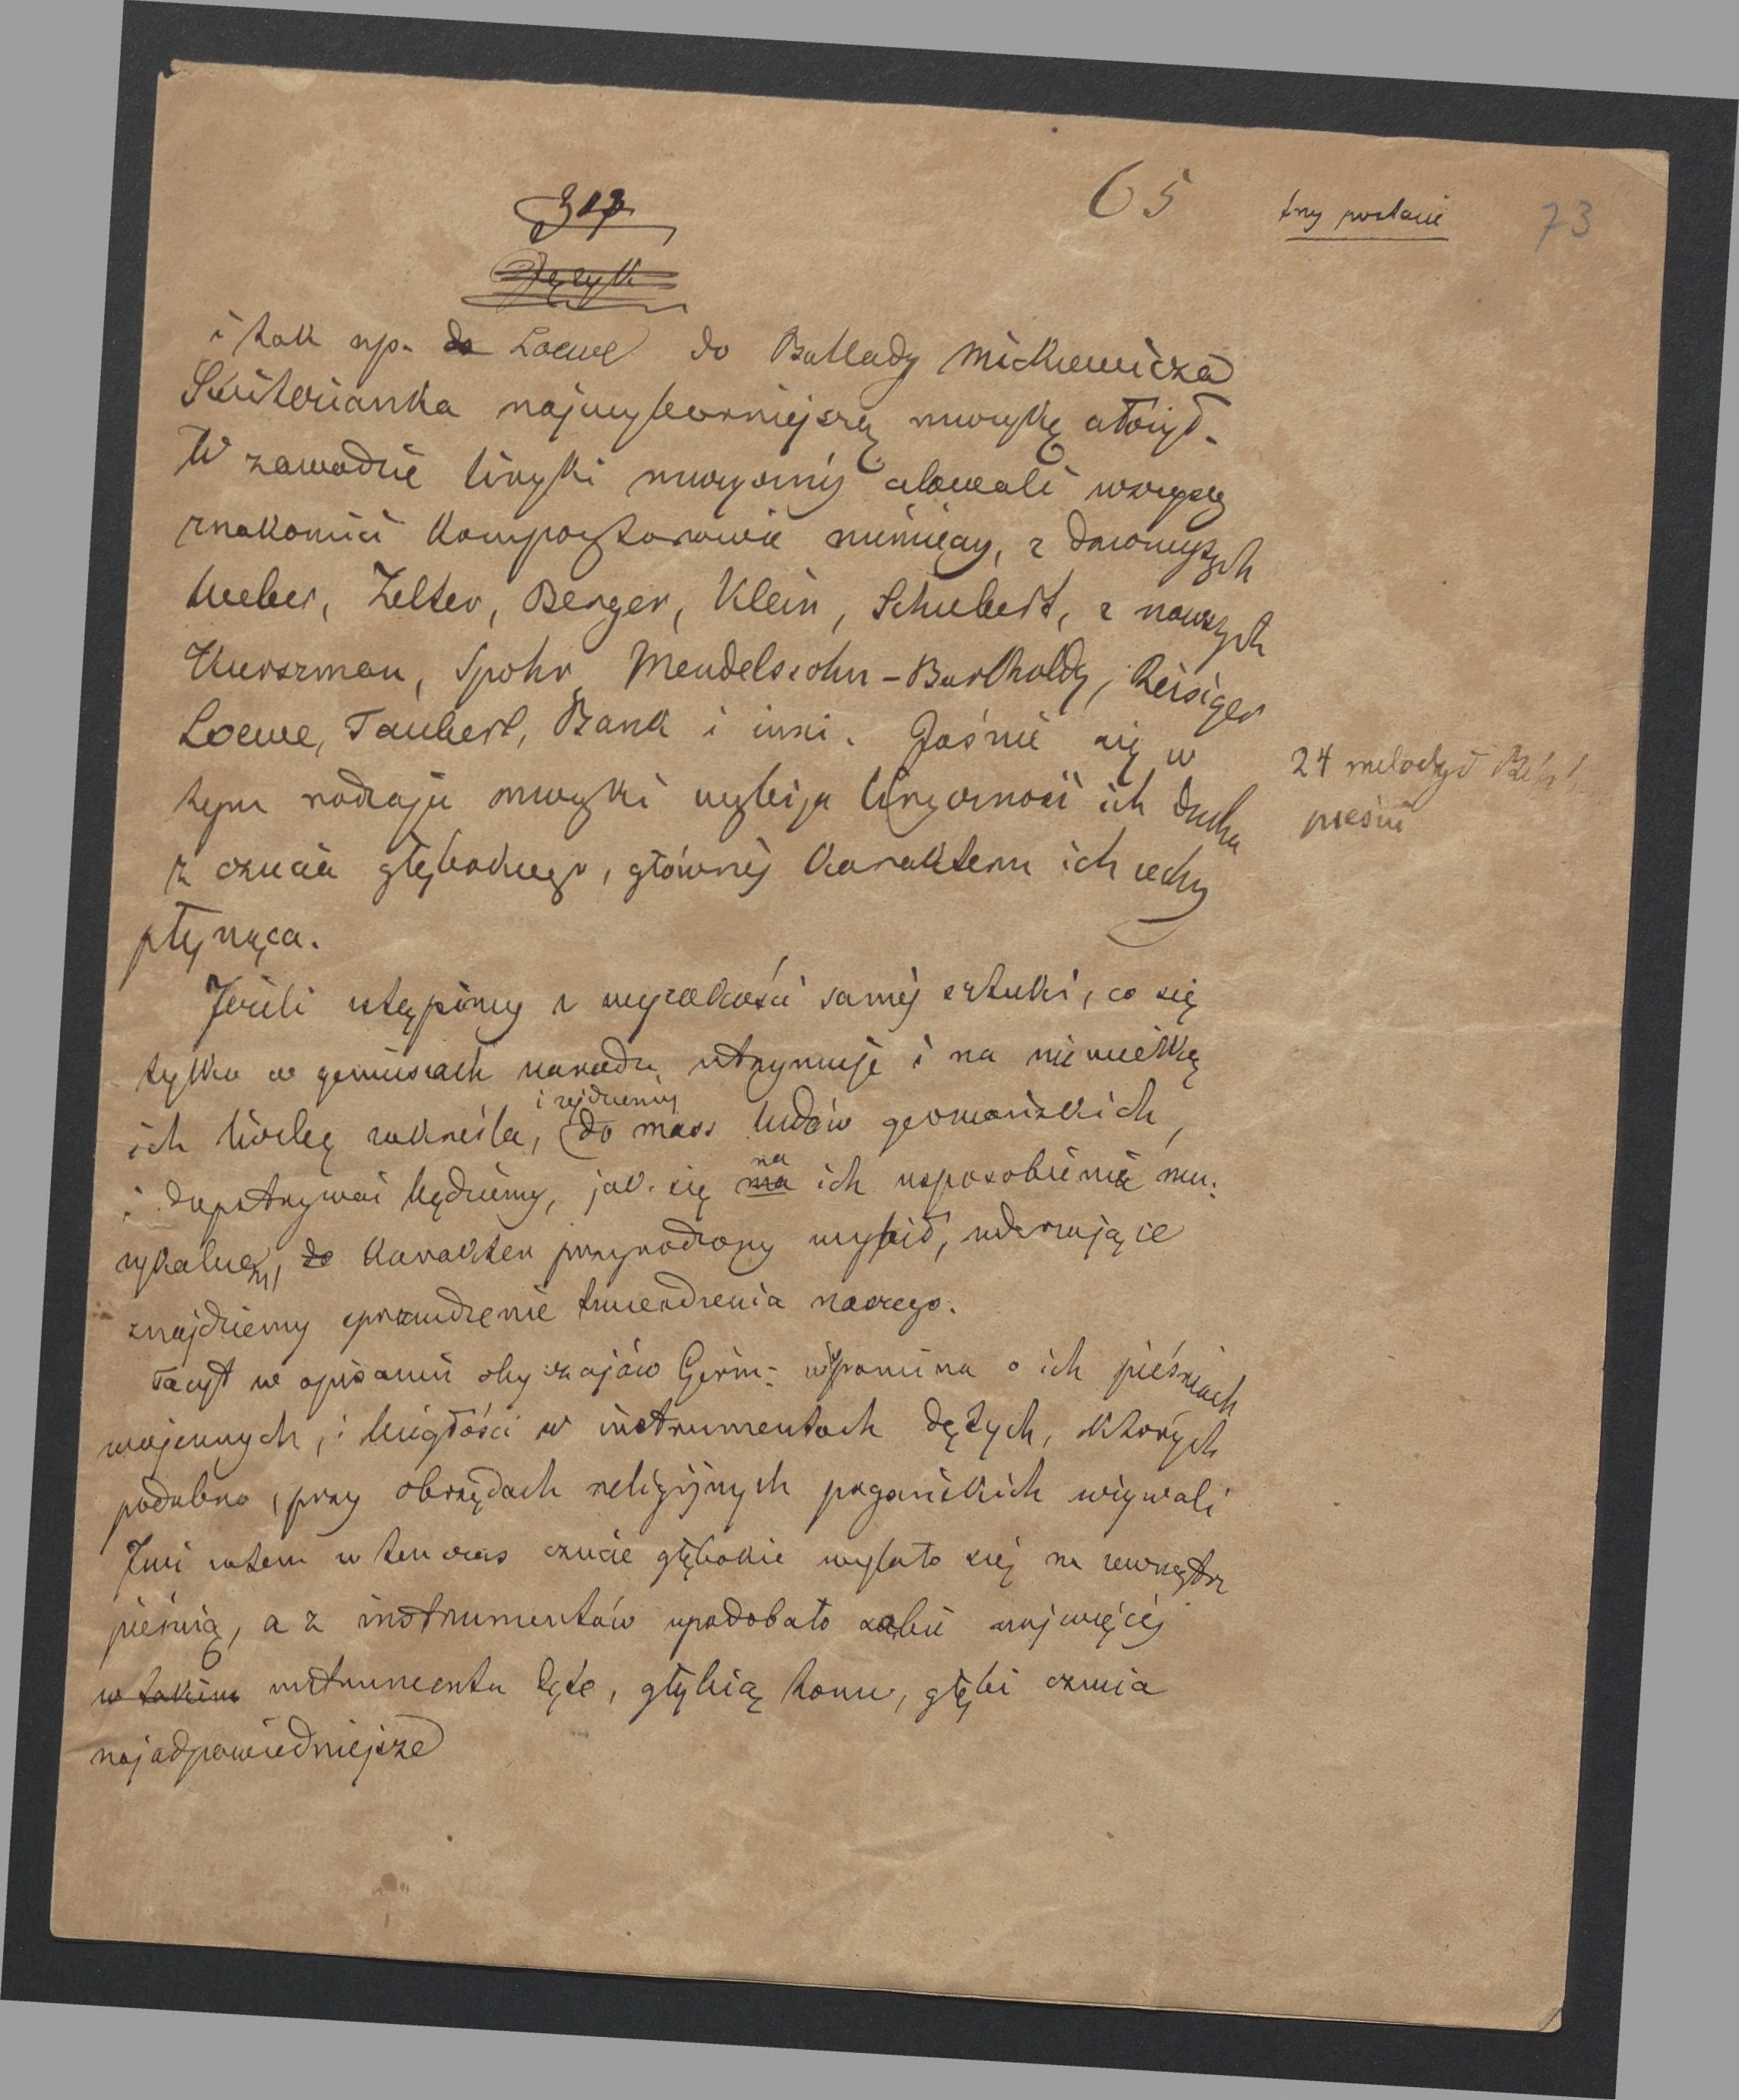 65
trzy postacie
73
i tak np. do Loewe do Ballady Mickiewicza
Switezianka najwyborniejszą muzykę ułożył.
W zawodzie liryki muzycznej celowali wszyscy
znakomici kompozytorowie niemieccy, z dawniejszych
Weber, Zelter, Berger, Klein, Schubert, z nowszych
Kurszman, Spohr, Mendelssohn-Bartholdy, Reisiger
Loewe, Taubert, Bank i inni. Jaśnie się w
tym rodzaju muzyki wybija liryczność ich ducha
z czucia głębokiego, głównej charakteru ich cechy
płynąca.
24 melodye
pieśni
Jeżeli ustąpimy z wysokości samej sztuki, co się
tylko w geniuszach narodu utrzymuje i na niewielką
ich liczbę zakreśla, i zejdziemy do mass ludów germańskich,
i dopatrywać będziemy, jak się ma na ich usposobienie mu:
zykalnem, do karakter przyrodzony wybił, uderzające
znajdziemy sprawdzenie twierdzenia naszego.
Tacyt w opisaniu obyczajów Germ: wspomina o ich pieśniach
wojennych, i biegłości w instrumentach dętych, których
podobno, przy obrzędach religijnych pogańskich używali
Już zatem w ten czas czucie głębokie wylało się na zewnątrz
pieśnią, a z instrumentów upodobało sobie najwięcej
w takim instrumenta dęte, głębią tonu, głębi czucia
najodpowiedniejsze